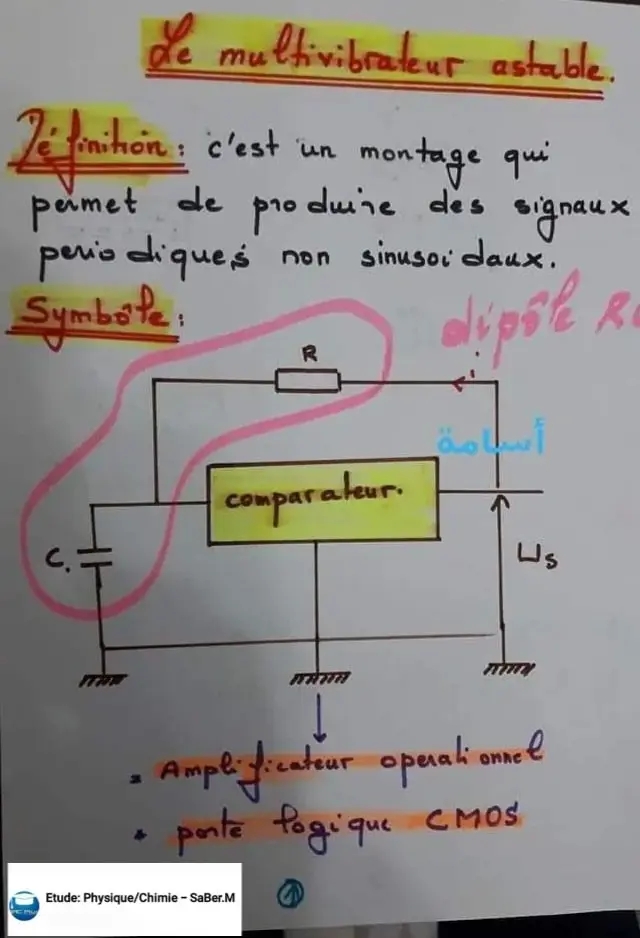 Le multivibrateur astable.
Définition: c'est un montage qui
permet de produire des signaux
periodiques non sinusoidaux.
Symbôle:
dipôle R
R
i
أسامة
comparateur.
C.
Us
Amplificateur operationnel
porte logique CMOS
1
Etude: Physique/Chimie – SaBer.M